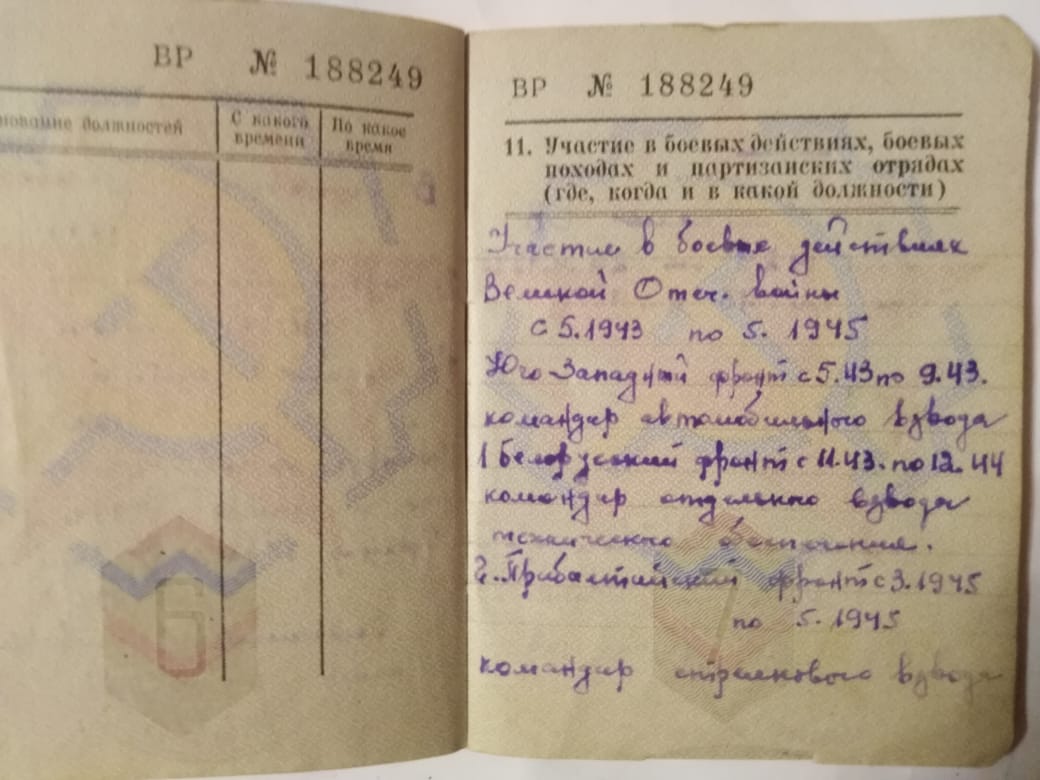 ВР № 188249
нование должностей
С какого времени
По какое время
6
ВР № 188249
11. Участие в боевых действиях, боевых
походах и партизанских отрядах
(где, когда и в какой должности)
Участие в боевых действиях
Великой Отеч. войны
с 5.1943 по 5.1945
Юго-Западный фронт с 5.43 по 9.43.
командир автомобильного взвода
1 Белорусский фронт с 11.43. по 12.44
командир отдельного взвода
технического обеспечения.
2. Прибалтийский фронт с 3.1945
по 5.1945
командир стрелкового взвода
7